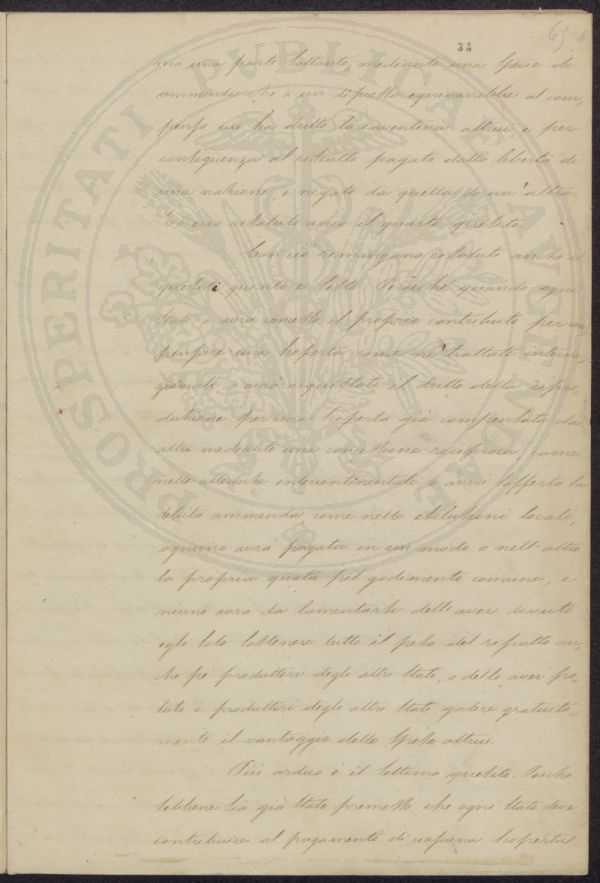 34
65
ma una parte soltanto, mediante una specie di
ammenda che a un dipresso equivarrebbe al com-
penso cui ha dritto la inventiva altrui, e per
conseguenza al riscatto pagato dalla libertà di
una nazione, e negato da quella di un'altra.
Ed ecco risoluto anco il quarto quesito.
Con ciò rimangono risoluti anche i
quesiti quinto e sesto. Poichè quando ogni
Stato o avrà connesso il proprio contributo per com
pensare una scoperta, come ne' trattati interna-
zionali, o avrà acquistato il dritto della ripro-
duzione per una scoperta già compensata da
altri mediante una concessione reciproca, come
nelle alleanze intercontinentali, o avrà sofferto la
debita ammenda come nelle esclusioni locali,
ognuno avrà pagato in un modo o nell'altro
la propria quota pel godimento comune, e
niuno avrà da lamentarsi dell'aver dovuto
egli solo sostenere tutto il peso del riscatto an-
che pei produttori degli altri Stati, o dello aver po-
tuto i produttori degli altri Stati godere gratuita-
mente il vantaggio delle spese altrui.
Più arduo è il settimo quesito. Poichè
sebbene sia già stato premesso che ogni Stato deve
contribuire al pagamento di ciascuna scoperta
PROSPERITATI PUBLICAE AUGENDAE